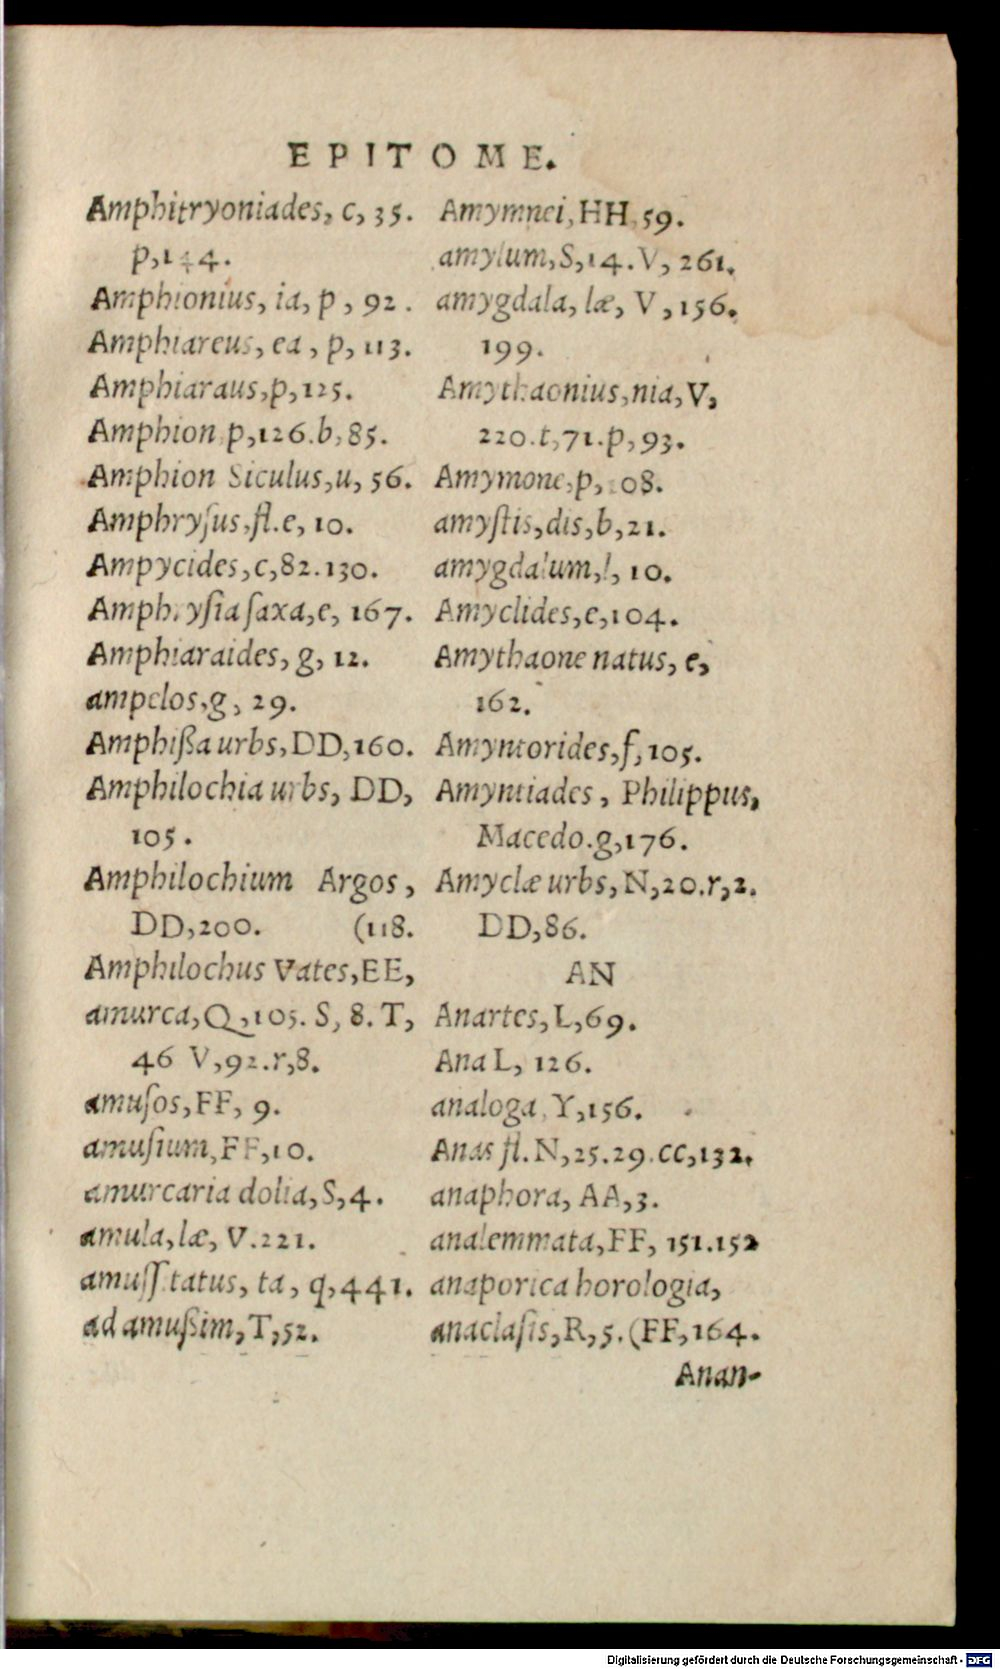 EPITOME.
Amphitryoniades, c, 35.
p,144.
Amphionius, ia, p, 92.
Amphiareus, ea, p, 113.
Amphiaraus,p,125.
Amphion p,126.b,85.
Amphion Siculus,u, 56.
Amphryſus,fl.e, 10.
Ampycides,c,82.130.
Amphryſia ſaxa,e, 167.
Amphiaraides, g, 12.
ampelos,g, 29.
Amphißa urbs,DD,160.
Amphilochia urbs, DD,
105.
Amphilochium Argos,
DD,200. (118.
Amphilochus Vates,EE,
amurca,Q,105. S, 8. T,
46 V,92.r,8.
amuſos,FF, 9.
amuſium,FF,10.
amurcaria dolia,S,4.
amula,læ, V.221.
amuſſitatus, ta, q,441.
ad amußim,T,52.
Amymnei,HH,59.
amylum,S,14.V, 261.
amygdala, læ, V,156.
199.
Amythaonius,nia,V,
220.t,71.p,93.
Amymone,p,108.
amyſtis,dis,b,21.
amygdalum,l, 10.
Amyclides,e,104.
Amythaone natus, e,
162.
Amyntorides,f,105.
Amyntiades, Philippus,
Macedo.g,176.
Amyclæ urbs, N,20.r,2.
DD,86.
AN
Anartes, L,69.
Ana L, 126.
analoga, Y,156.
Anas fl. N,25.29.cc,132.
anaphora, AA,3.
analemmata,FF, 151.152
anaporica horologia,
anaclaſis,R,5.(FF,164.
Anan-
Digitalisierung gefördert durch die Deutsche Forschungsgemeinschaft - DFG